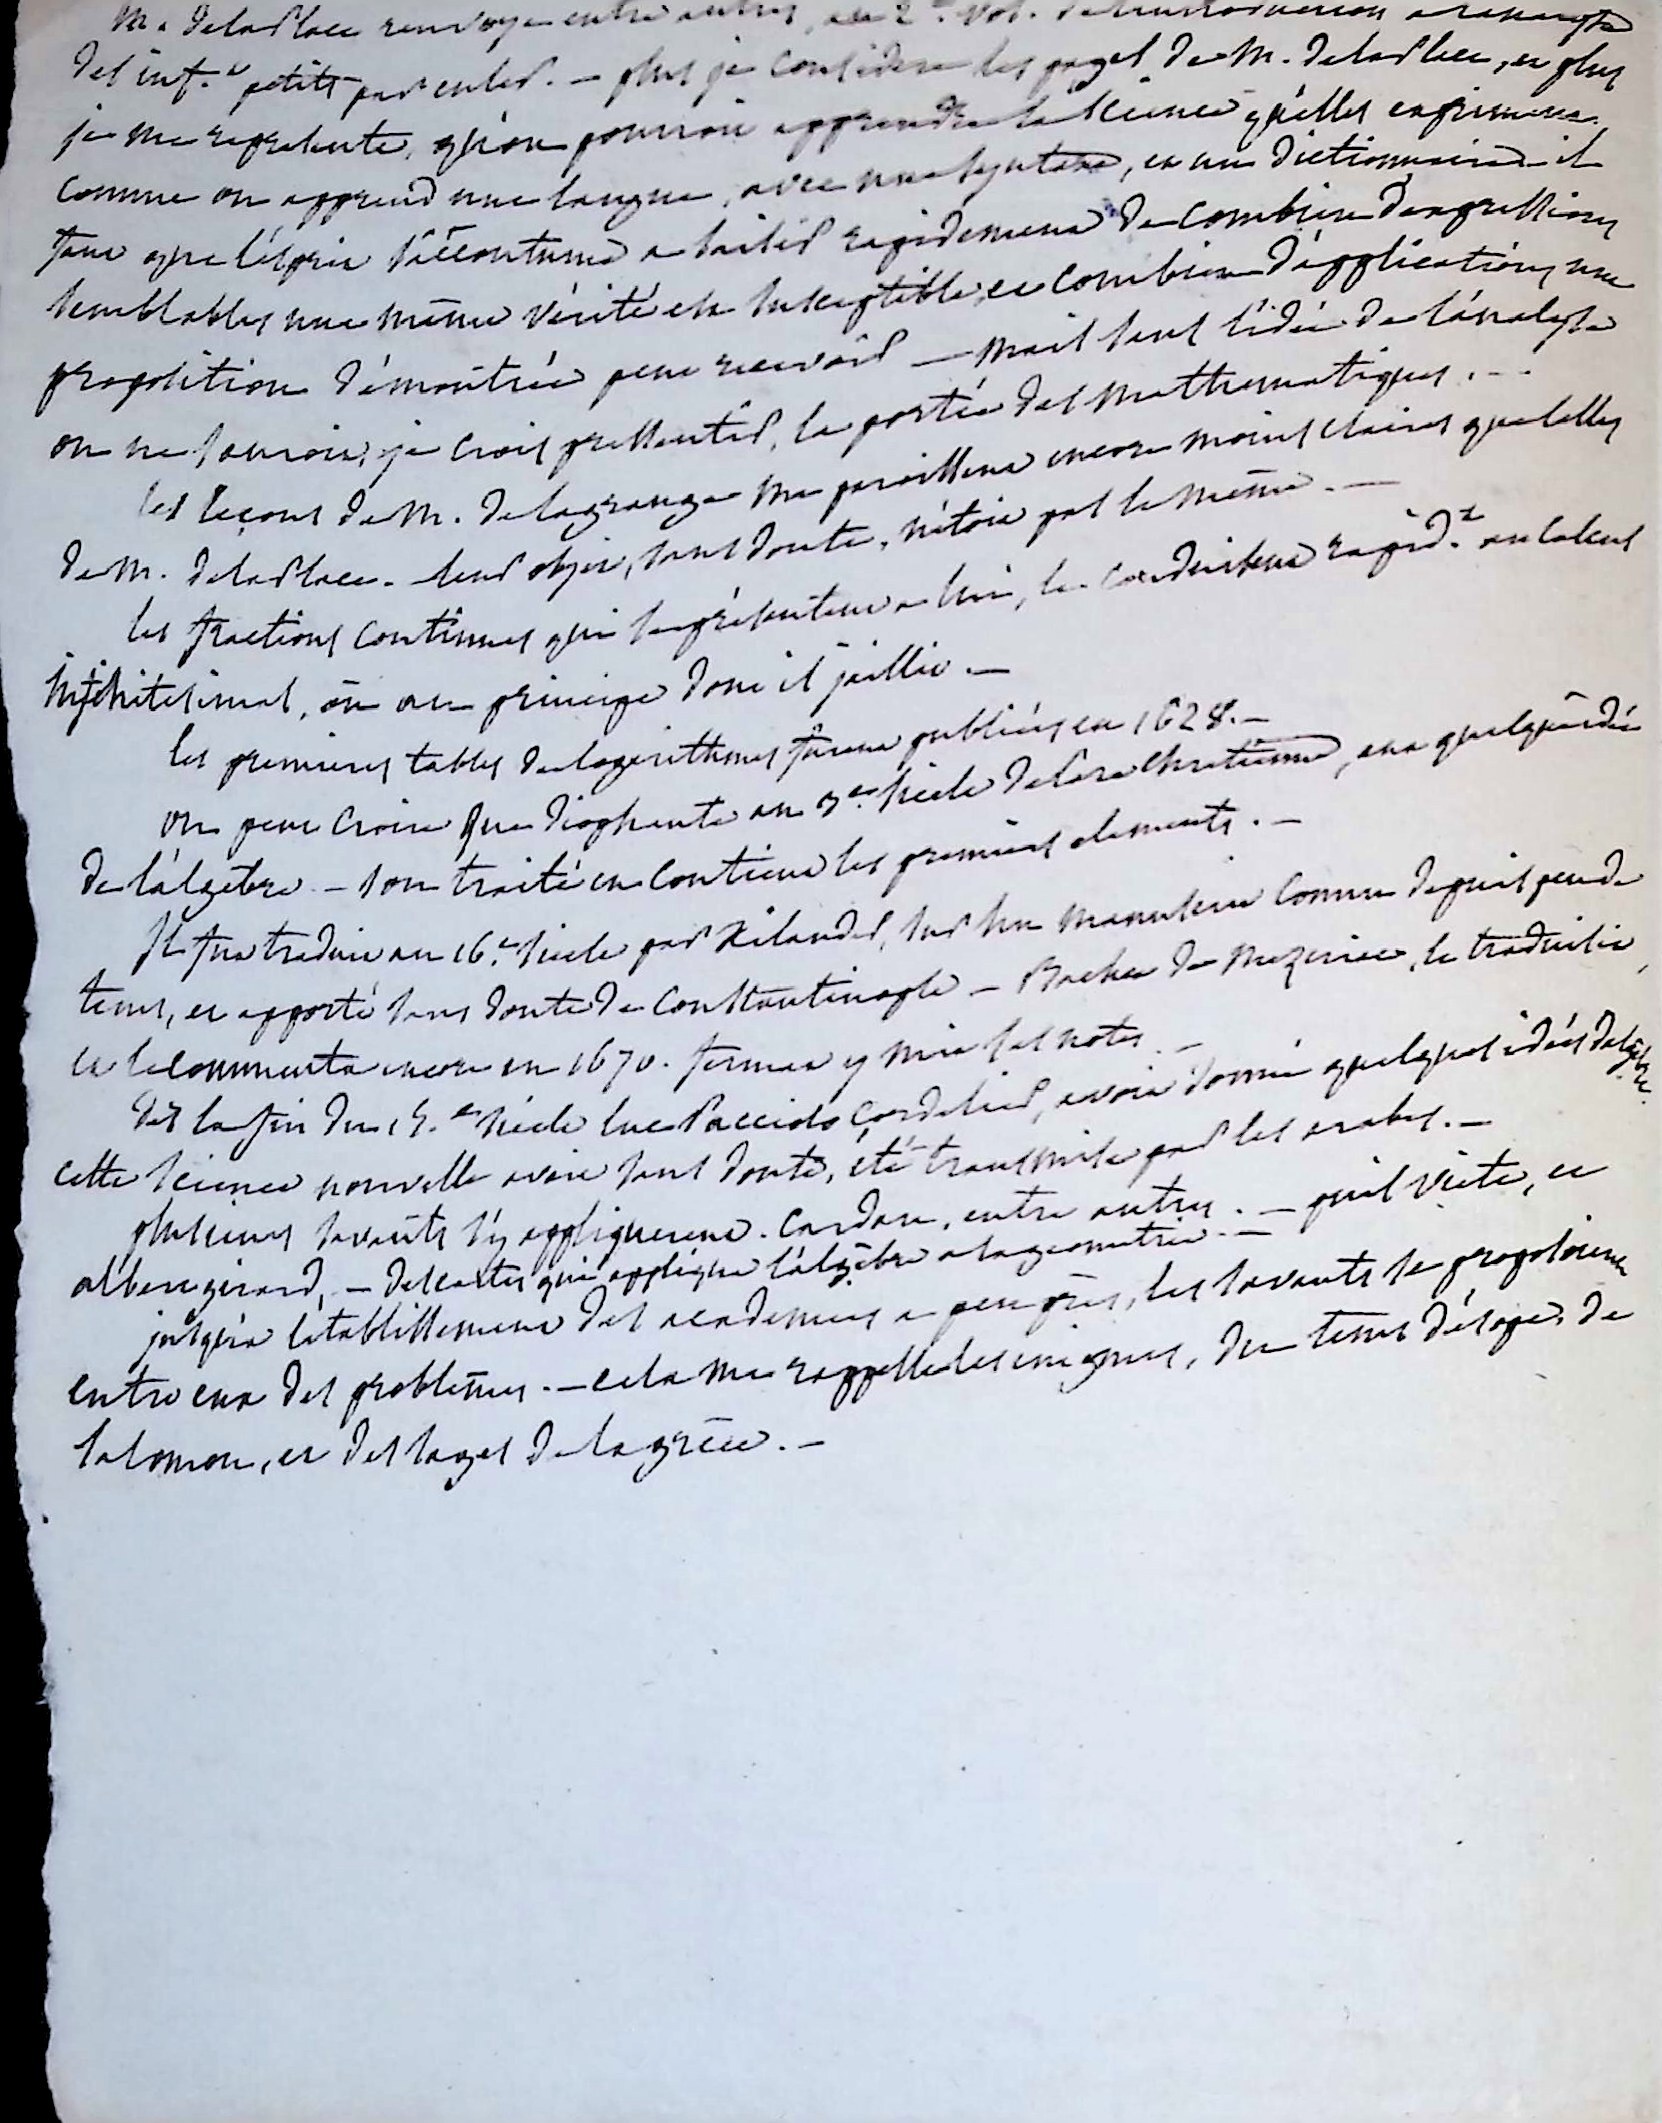 M. de la Place renvoye entre autres, au 2.e vol. de l'introduction a l'analyse
des inf.t petits par euler. — plus je considere les pages de M. de la Place, et plus
je me represente, qu'on pourroit apprendre la science qu'elles expriment
comme on apprend une langue, avec une syntaxe, et un dictionnaire — il
faut que l'esprit s'accoutume a saisir rapidement de combien d'expressions
semblables une même vérité est susceptible, et combien d'applications une
proposition démontrée peut recevoir — mais sans l'idée de l'analyse
on ne sauroit, je crois pressentir, la portée des mathematiques. . .
les leçons de M. de lagrange me paroissent encore moins claires que celles
de M. de la Place. leur objet, sans doute, n'étoit pas le même. —
les fractions continues qui se présentent a lui, le conduisent rapid.t au calcul
infinitesimal, ou au principe dont il jaillit. —
les premieres tables de logarithmes furent publiées en 1628. —
on peut croire que diophante au 3.e siecle de l'ere chretienne, eut quelqu'idée
de l'algebre. — son traité en contient les premiers elements. —
Il fut traduit au 16.e siecle par Xilander, sur un manuscrit connu depuis peu de
tems, et apporté sans doute de Constantinople — Bachet de Meziriac, le traduisit,
et le commenta encore en 1670. fermat y mit ses notes. —
des la fin du 15.e siecle luc Pacciolo cordelier, avoit donné quelques idées d'algebre.
cette science nouvelle avoit sans doute, été transmise par les arabes. —
plusieurs savants s'y appliquerent. Cardan, entre autres. — puis viete, et
albert girard, — descartes qui applique l'algèbre a la geometrie. —
jusqu'a l'etablissement des academies a peu près, les savants se proposoient
entre eux des problêmes. — cela me rappelle les enigmes, du tems d'ésope, de
salomon, et des sages de la grèce. —